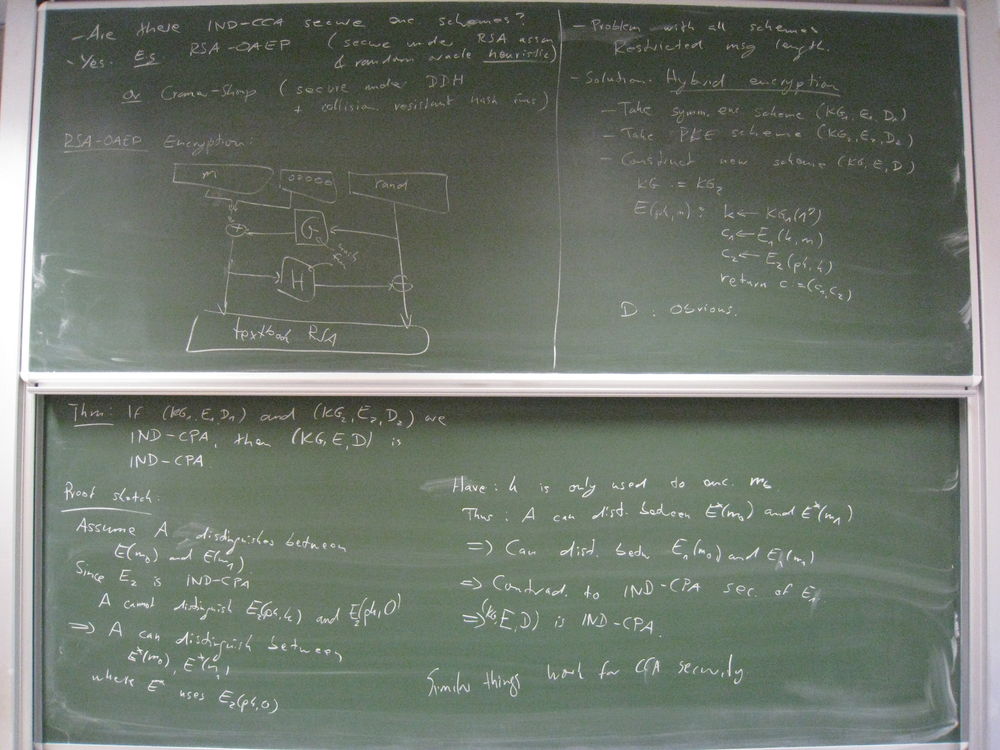 - Are there IND-CCA secure enc. schemes?
- Yes. E.g. RSA-OAEP (secure under RSA assm
& random oracle heuristic)
or Cramer-Shoup (secure under DDH
+ collision resistant hash funs)
RSA-OAEP Encryption:
m 00000 rand
G
hash
H
textbook RSA
- Problem with all schemes
Restricted msg length.
- Solution. Hybrid encryption
- Take symm. enc scheme (KG₁, E₁, D₁)
- Take PKE scheme (KG₂, E₂, D₂)
- Construct new scheme (KG, E, D)
KG := KG₂
E(pk, m): k ← KG₁(1^η)
c₁ ← E₁(k, m)
c₂ ← E₂(pk, k)
return c := (c₁, c₂)
D: Obvious.
Thm: If (KG₁, E₁, D₁) and (KG₂, E₂, D₂) are
IND-CPA, then (KG, E, D) is
IND-CPA.
Proof sketch:
Assume A distinguishes between
E(m₀) and E(m₁)
Since E₂ is IND-CPA
A cannot distinguish E₂(pk, k) and E₂(pk, 0)
⇒ A can distinguish between
E*(m₀), E*(m₁)
where E* uses E₂(pk, 0)
Have: k is only used to enc. m_b
Thus: A can dist. between E*(m₀) and E*(m₁)
⇒ Can dist. betw. E₁(m₀) and E₁(m₁)
⇒ Contrad. to IND-CPA sec. of E₁
⇒ (KG, E, D) is IND-CPA.
Similar things work for CCA security